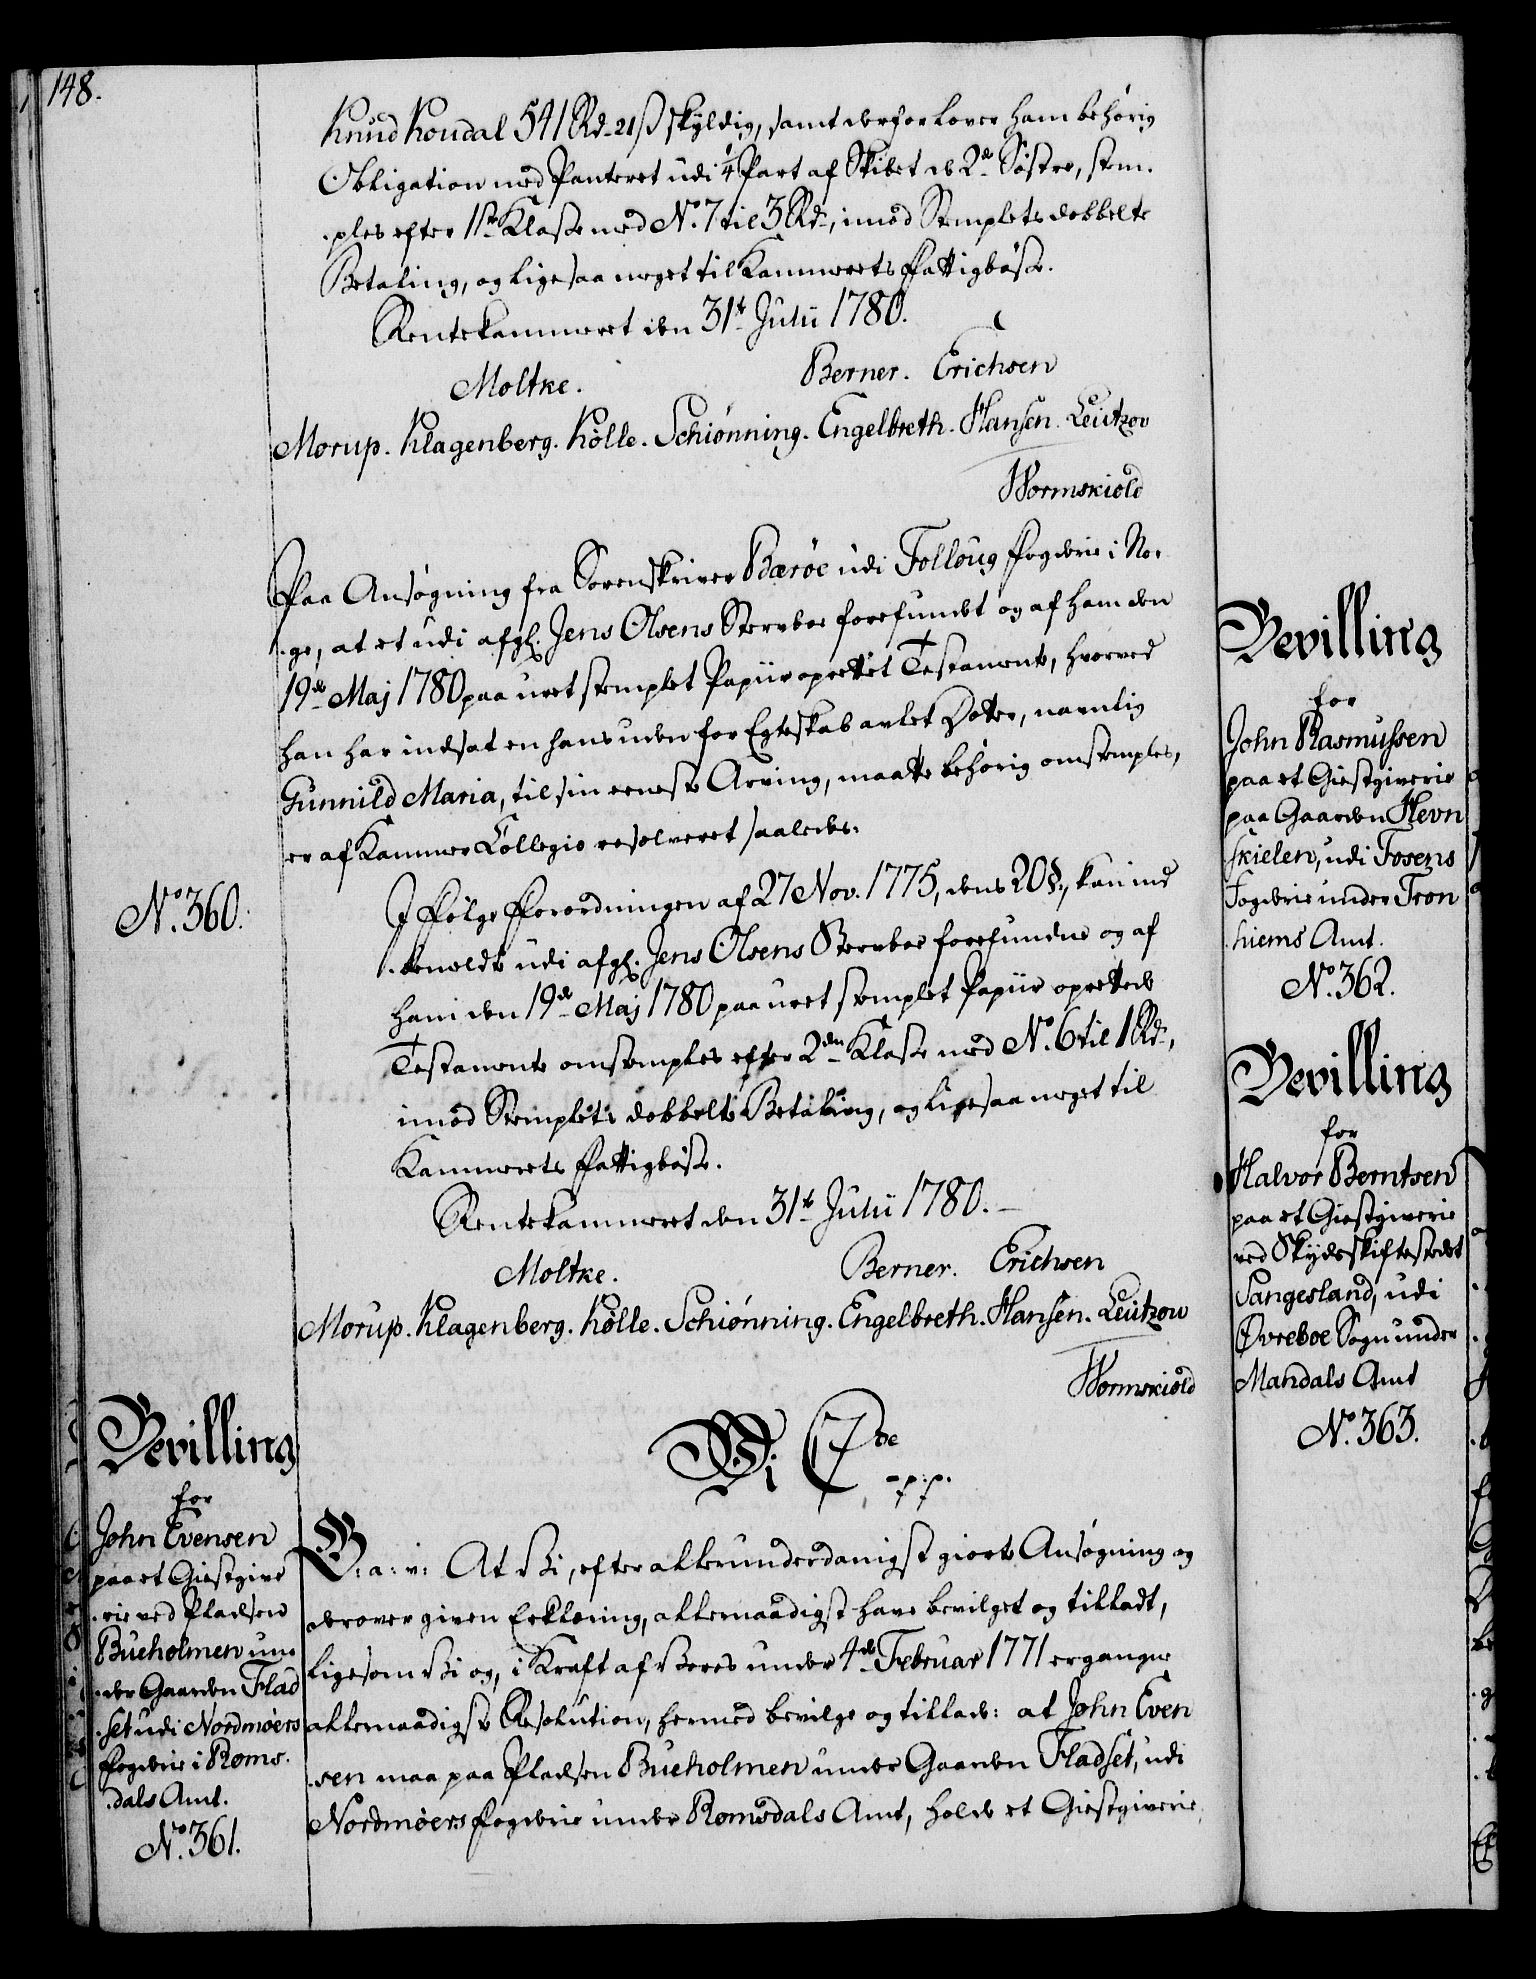 148.
Knud Koudal 541 Rd. 21 ß skyldig, samt derfor lover ham behørig
Obligation med Panteret udi ¼ Part af Skibet de 2de Søstre, stem-
ples efter 1ste Klasse med No. 7 til 3 Rd., imod Stemplets dobbelte
Betaling, og ligesaa meget til Kammerets Fattigbøsse.
Rentekammeret den 31te Julii 1780.
Moltke. Berner. Erichsen
Morup. Klagenberg. Kölle. Schiønning. Engelbreth. Hansen. Leützov
Wormskiold
Paa Ansøgning fra Sorenskriver Bærøe udi Folloug Fogderie i Nor-
ge, at et udi afgl. Jens Olsens Sterboe forefundet og af ham den
19de Maj 1780 paa uret stemplet Papiir oprettet Testamente, hvorved
han har indsat en hans uden for Egteskab avlet Dotter, navnlig
Gunnild Maria, til sin eeneste Arving, maatte behørig omstemples,
er af Kammer Collegio resolveret saaledes:
No. 360.
I Følge Forordningen af 27 Nov. 1775, dens 20 §, kan ind-
bemeldte udi afgl. Jens Olsens Sterboe forefundne og af
ham den 19de Maj 1780 paa uret stemplet Papiir oprettede
Testamente omstemples efter 2den Klasse med No. 6 til 1 Rd.,
imod Stemplets dobbelte Betaling, og ligesaa meget til
Kammerets Fattigbøsse.
Rentekammeret den 31te Julii 1780.
Moltke. Berner. Erichsen
Morup. Klagenberg. Kölle. Schiønning. Engelbreth. Hansen. Leützow
Wormskiold
Bevilling
for
John Evensen
paa et Giestgive
rie ved Pladsen
Bueholmen un
der Gaarden Flad
set udi Nordmøers
Fogderie i Roms-
dals Amt.
No. 361.
Vi C 7de p. p.
G: a: v: At Vi, efter allerunderdanigst giorte Ansøgning og
derover given Erklæring, allernaadigst have bevilget og tilladt,
ligesom Vi og, i Kraft af Vores under 4de Februar 1771 ergangne
allernaadigste Resolution, hermed bevilge og tillade: at John Even
sen maa paa Pladsen Bueholmen under Gaarden Fladset, udi
Nordmøers Fogderie under Romsdals Amt, holde et Giestgiverie,
Bevilling
for
John Rasmussen
paa et Giestgiverie
paa Gaarden Hevn
skielen, udi Fosens
Fogderie under Tron
hiems Amt.
No. 362.
Bevilling
for
Halvor Berntsen
paa et Giestgiverie
ved Skydsskiftestedet
Sangesland, udi
Øvreboe Sogn under
Mandals Amt
No. 363.